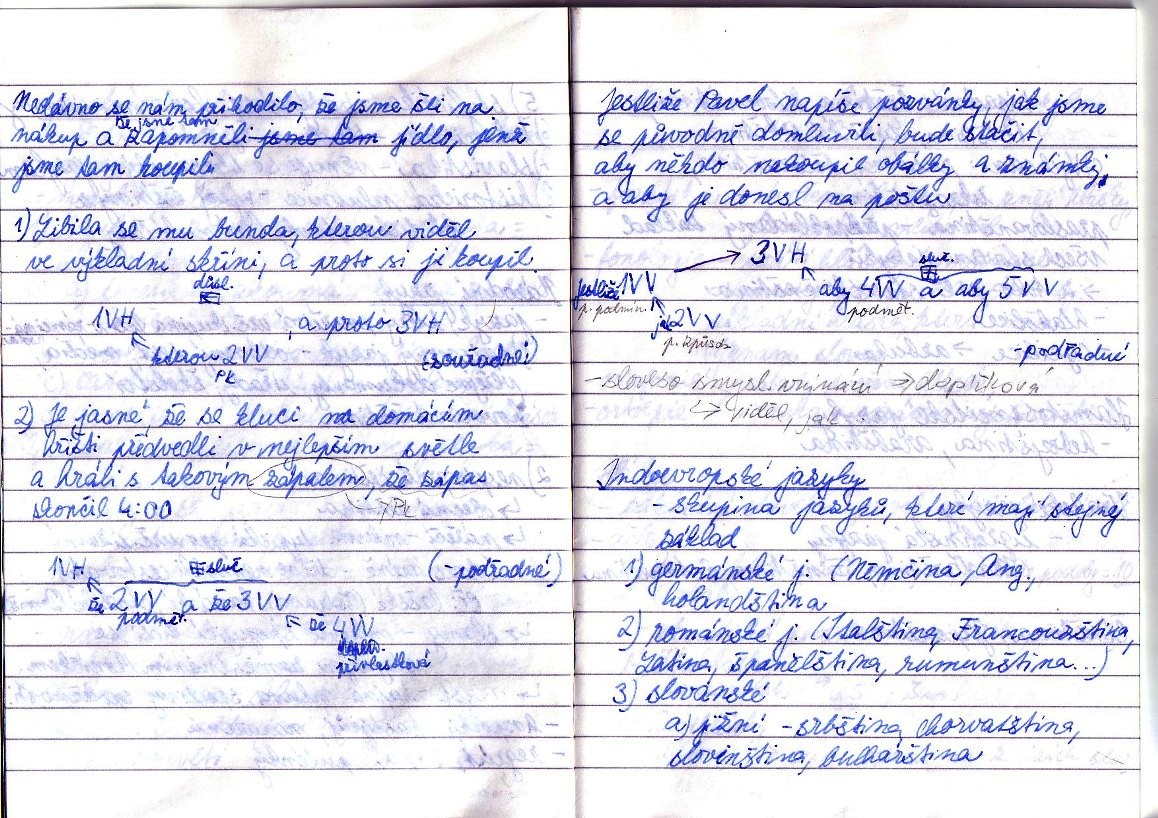 Nedávno se nám přihodilo, že jsme šli na
že jsme tam
nákup a zapomněli jsme tam jídlo, jenž
jsme tam koupili
1) Líbila se mu bunda, kterou viděl
ve výkladní skříni, a proto si ji koupil.
důsl.
1VH , a proto 3VH
kterou 2VV (souřadné)
Pk
2) Je jasné, že se kluci na domácím
hřišti předvedli v nejlepším světle
a hráli s takovým zápalem, že zápas
skončil 4:00
→Pk
1VH sluč (-podřadné)
že 2VV a že 3VV
podmět. že 4VV
přívlastková
Jestliže Pavel napíše pozvánky, jak jsme
se původně domluvili, bude stačit,
aby někdo nakoupil obálky a známky,
a aby je donesl na poštu
3VH sluč.
jestliže 1VV aby 4VV a aby 5VV
p. podmín. podmět.
jak 2VV
p. způsob.
-podřadné
-sloveso smysl. vnímání → doplňková
↳ viděl, jak
Indoevropské jazyky
- skupina jazyků, které mají stejný
základ
1) germánské j. (Němčina, Ang.,
holandština
2) románské j. (Italština, Francouzština,
Latina, španělština, rumunština...)
3) slovanské
a) jižní - srbština, chorvatština,
slovinština, bulharština